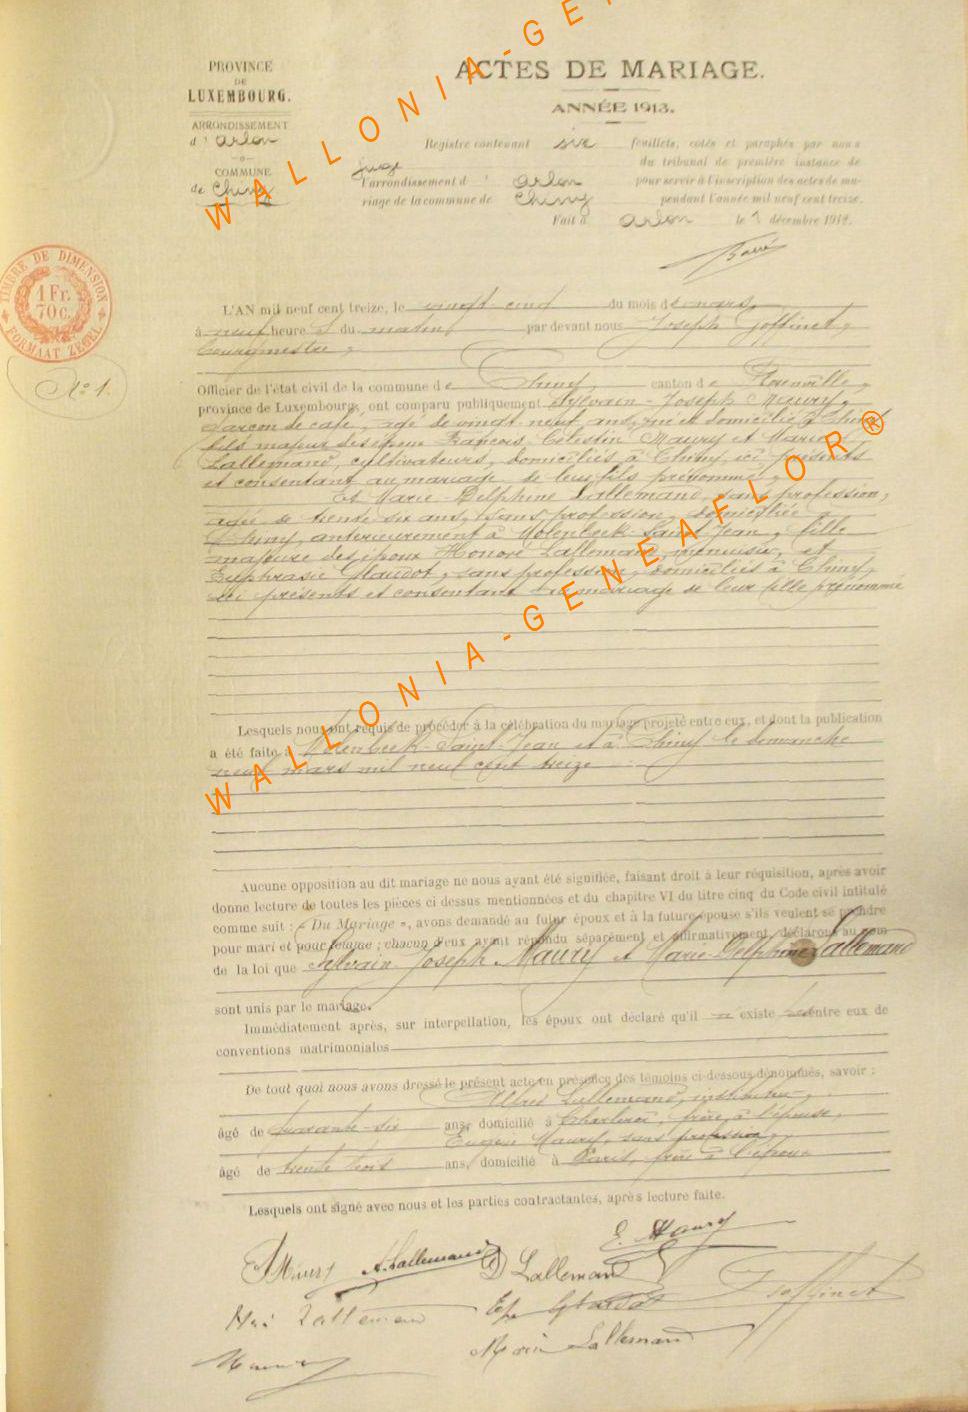 PROVINCE
DE
LUXEMBOURG.
ARRONDISSEMENT
d'Arlon
COMMUNE
de Chiny
ACTES DE MARIAGE.
ANNÉE 1913.
Registre contenant six feuillets, cotés et paraphés par nous
juge du tribunal de première instance de
l'arrondissement d'Arlon pour servir à l'inscription des actes de ma-
riage de la commune de Chiny pendant l'année mil neuf cent treize.
Fait à Arlon le 1 décembre 1912.
TIMBRE DE DIMENSION
1 Fr.
70 c.
FORMAAT ZEGEL
No 1.
L'AN mil neuf cent treize, le vingt cinq du mois de mars,
à neuf heures du matin par devant nous Joseph Goffinet,
bourgmestre,
Officier de l'état civil de la commune de Chiny, canton de Florenville,
province de Luxembourg, ont comparu publiquement Sylvain-Joseph Maury,
garçon de café, âgé de vingt neuf ans, né et domicilié à Chiny
fils majeur des époux François Célestin Maury et Marie
Lallemand, cultivateurs, domiciliés à Chiny, ici présents
et consentant au mariage de leur fils prénommé,
Et Marie-Delphine Lallemand, sans profession,
âgée de trente six ans, sans profession, domiciliée à
Chiny, antérieurement à Molenbeek-Saint-Jean, fille
majeure des époux Honoré Lallemand, menuisier, et
Euphrasie Glaudot, sans profession, domiciliés à Chiny,
ici présents et consentant au mariage de leur fille prénommée
Lesquels nous ont requis de procéder à la célébration du mariage projeté entre eux, et dont la publication
a été faite à Molenbeek-Saint-Jean et à Chiny le dimanche
neuf mars mil neuf cent treize
Aucune opposition au dit mariage ne nous ayant été signifiée, faisant droit à leur réquisition, après avoir
donné lecture de toutes les pièces ci dessus mentionnées et du chapitre VI du titre cinq du Code civil intitulé
comme suit : « Du Mariage », avons demandé au futur époux et à la future épouse s'ils veulent se prendre
pour mari et pour femme ; chacun d'eux ayant répondu séparément et affirmativement, déclarons au nom
de la loi que Sylvain-Joseph Maury et Marie-Delphine Lallemand
sont unis par le mariage.
Immédiatement après, sur interpellation, les époux ont déclaré qu'il existe entre eux de
conventions matrimoniales
De tout quoi nous avons dressé le présent acte en présence des témoins ci-dessous dénommés, savoir :
Alfred Lallemand, instituteur,
âgé de quarante-six ans, domicilié à Charleroi, frère à l'épouse,
Eugène Maury, sans profession,
âgé de trente trois ans, domicilié à Paris, frère à l'époux
Lesquels ont signé avec nous et les parties contractantes, après lecture faite.
E. Maury
Maury A. Lallemand D Lallemand
Lallemand Glaudot J Goffinet
Maury Marie Lallemand
WALLONIA-GENEAFLOR®
WALLONIA-GE